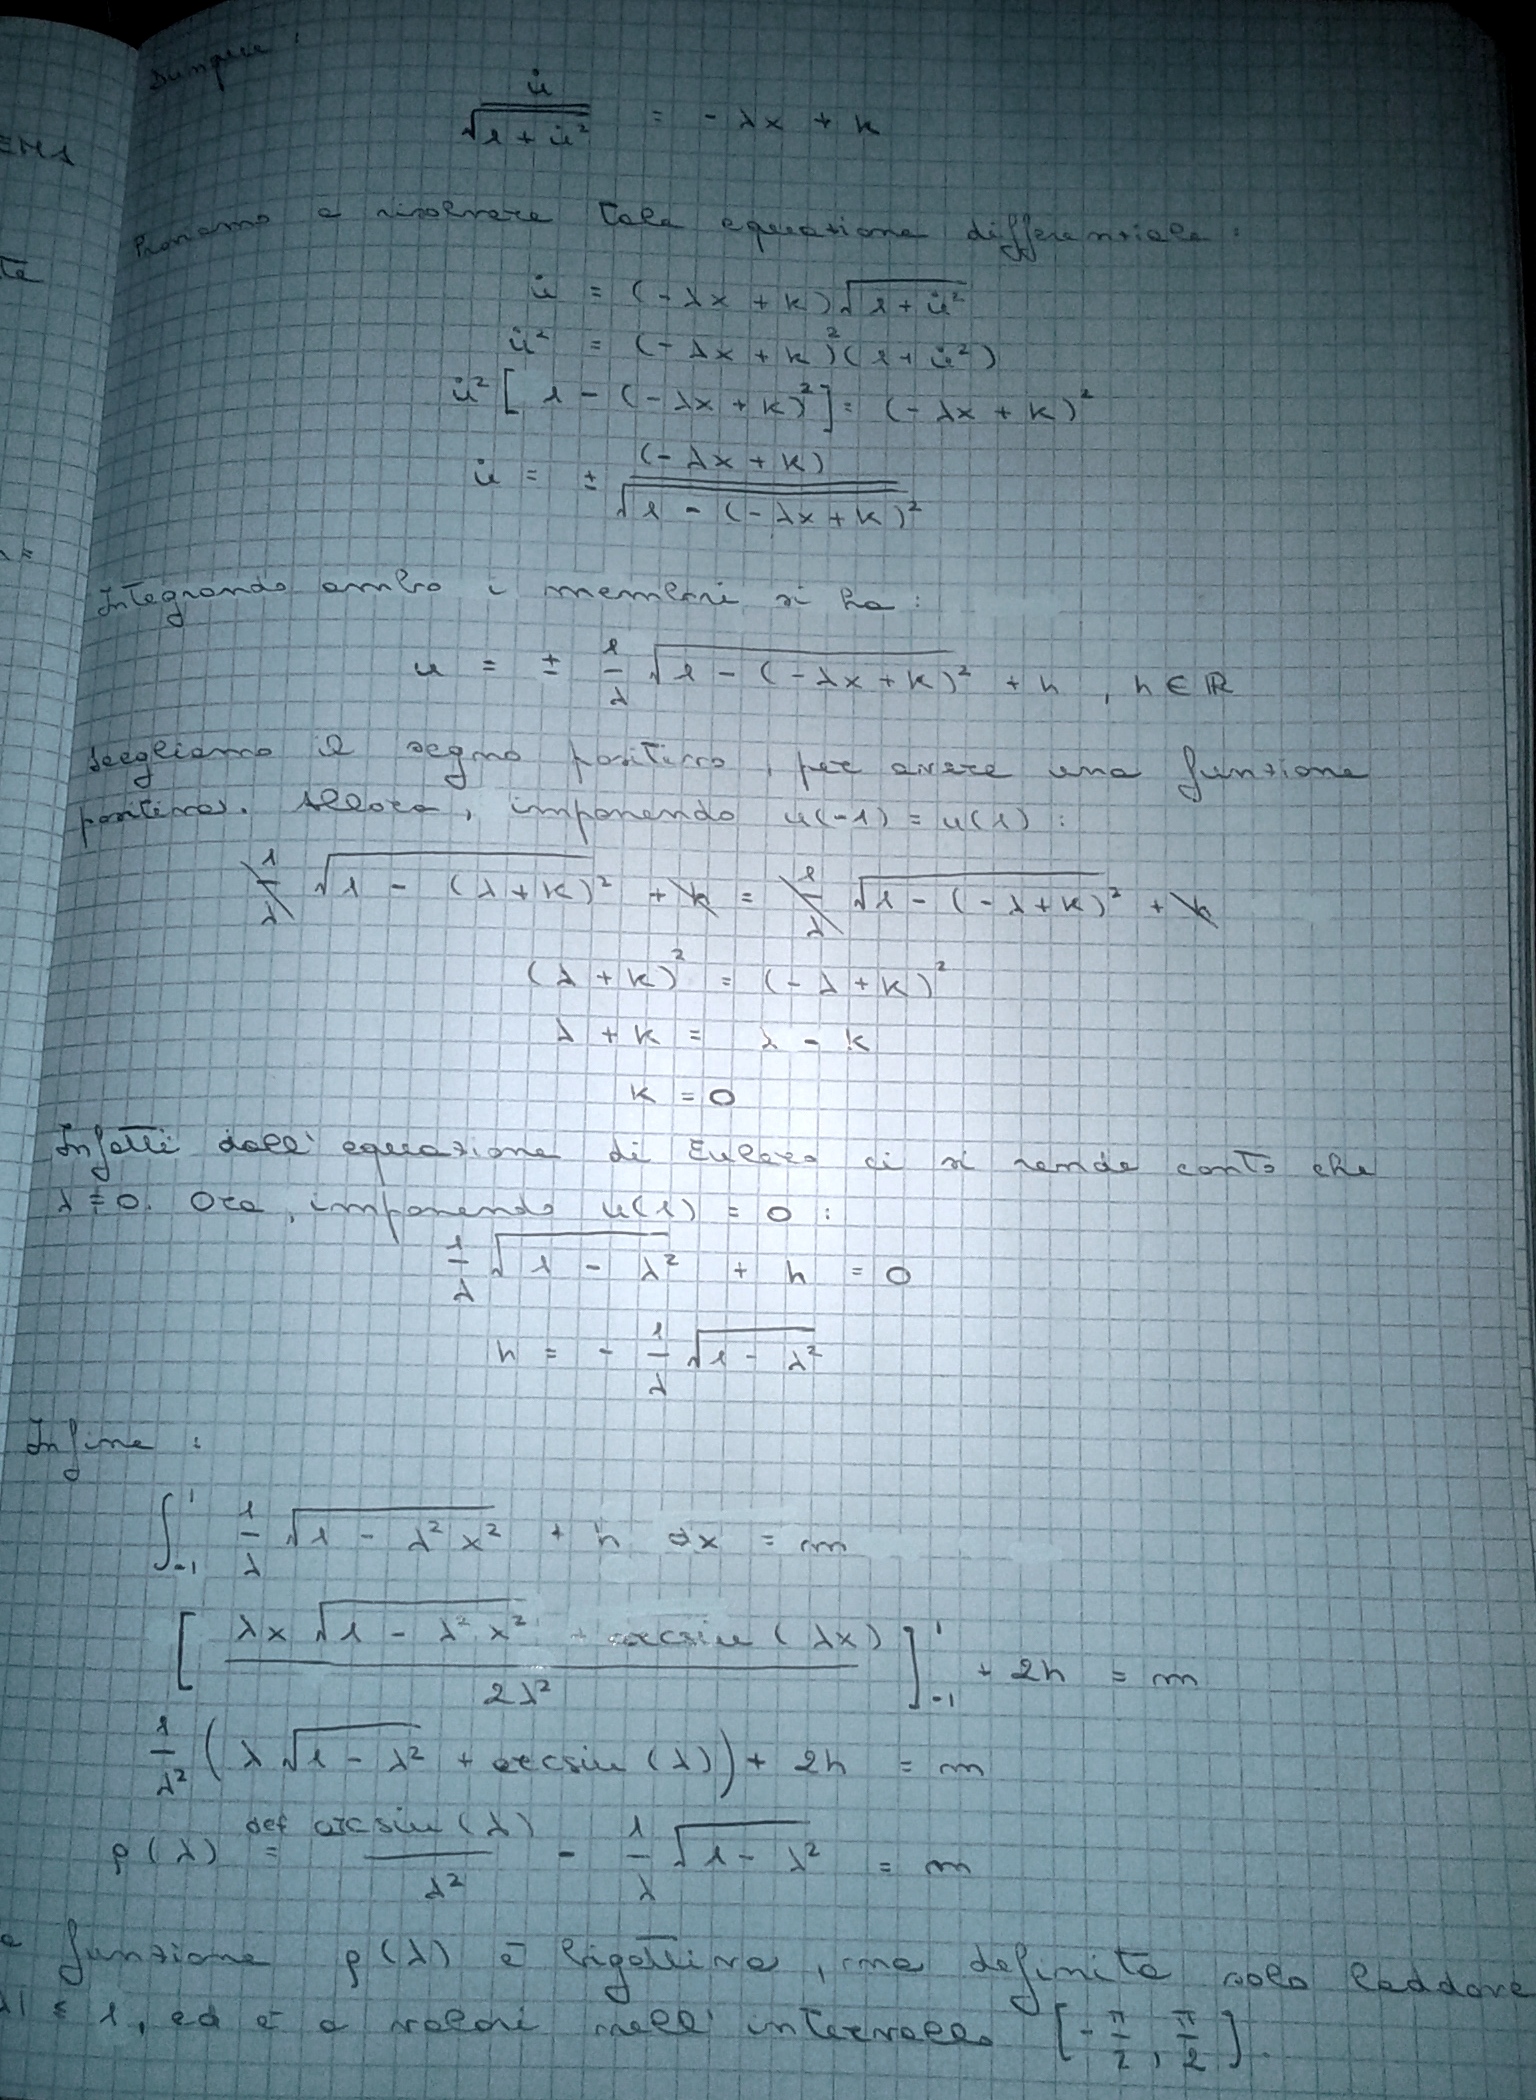 Dunque:
u̇ / √(1 + u̇²) = - λx + k
Proviamo a risolvere tale equazione differenziale:
u̇ = (- λx + k) √(1 + u̇²)
u̇² = (- λx + k)² (1 + u̇²)
u̇² [ 1 - (- λx + k)² ] = (- λx + k)²
u̇ = ± (- λx + k) / √(1 - (- λx + k)²)
Integrando ambo i membri si ha:
u = ± 1/λ √(1 - (- λx + k)²) + h , h ∈ ℝ
Scegliamo il segno positivo, per avere una funzione
positiva. Allora, imponendo u(-1) = u(1) :
1/λ √(1 - (λ + k)²) + h = 1/λ √(1 - (- λ + k)²) + h
(λ + k)² = (- λ + k)²
λ + k = λ - k
k = 0
Infatti dall'equazione di Eulero ci si rende conto che
λ ≠ 0. Ora, imponendo u(1) = 0 :
1/λ √(1 - λ²) + h = 0
h = - 1/λ √(1 - λ²)
Infine :
∫₋₁¹ 1/λ √(1 - λ² x²) + h dx = m
[ (λx √(1 - λ² x²) + arcsin (λx)) / 2λ² ]₋₁¹ + 2h = m
1/λ² ( λ √(1 - λ²) + arcsin (λ) ) + 2h = m
ρ(λ) def= arcsin (λ) / λ² - 1/λ √(1 - λ²) = m
funzione ρ(λ) è bigettiva, ma definita solo laddove
≤ 1, ed è a valori nell'intervallo [- π/2, π/2].